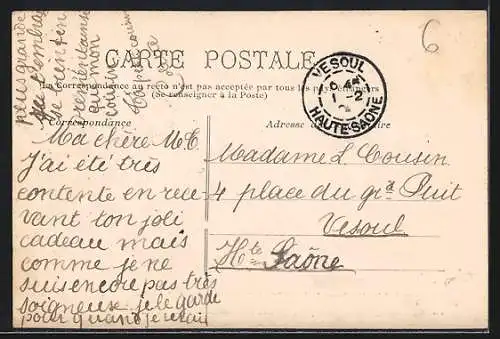 CARTE POSTALE
La Correspondance au recto n'est pas acceptée par tous les pays étrangers
(Se renseigner à la Poste)
Correspondance
Adresse
VESOUL
1 - 2
HAUTE-SAONE
6
Ma chère M.C.
J'ai été très
contente en rece
vant ton joli
cadeau mais
comme je ne
suis encore pas très
soigneuse je le garde
pour quand je serai
plus grande
Je t'en
remon
cousine
Ta petite cousine
Madame L. Cousin
4 place du gd Puit
Vesoul
Hte Saône